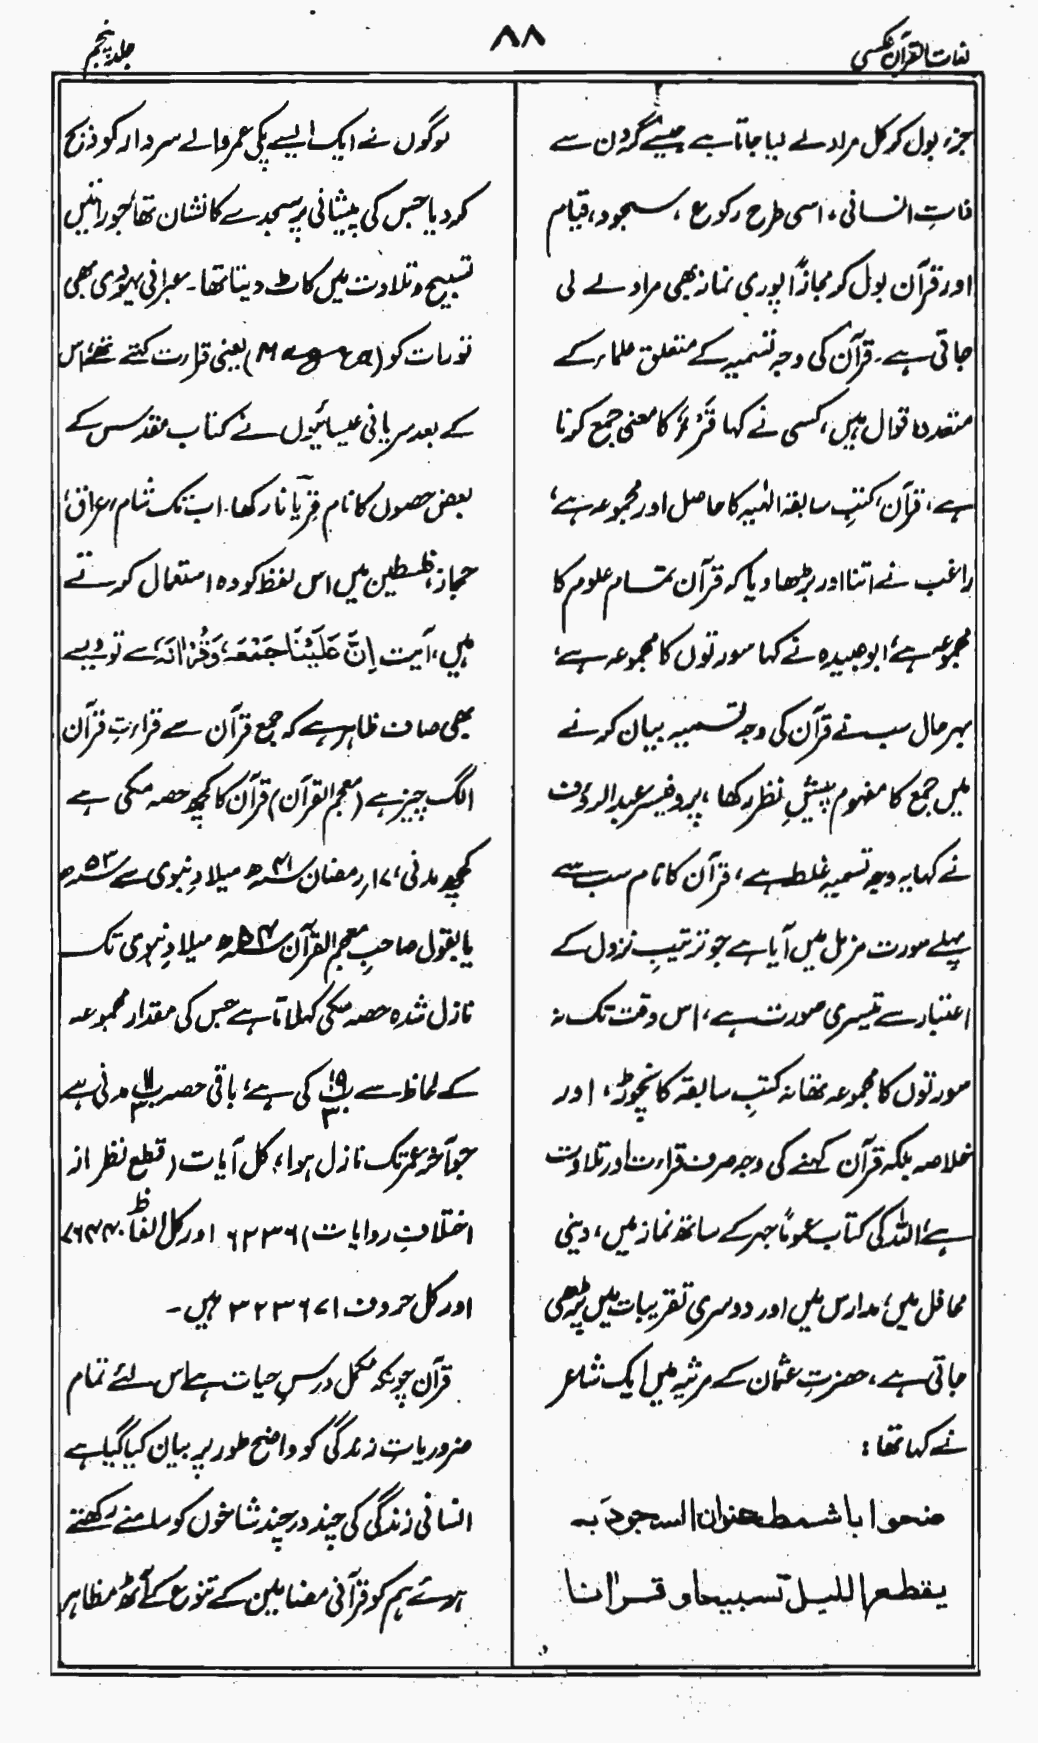 لغات القرآن عکسی
۸۸
جلد پنجم
جزء بول کر کل مراد لے لیا جاتا ہے جیسے گردن سے
ذاتِ انسانی، اسی طرح رکوع، سجود، قیام
اور قرآن بول کر مجازاً پوری نماز بھی مراد لے لی
جاتی ہے۔ قرآن کی وجہ تسمیہ کے متعلق علماء کے
متعدد اقوال ہیں، کسی نے کہا قَرْءٌ کا معنی جمع کرنا
ہے، قرآن، کتبِ سابقہ الٰہیہ کا حاصل اور مجموعہ ہے،
راغب نے اتنا اور بڑھا دیا کہ قرآن تمام علوم کا
مجموعہ ہے، ابوعبیدہ نے کہا سورتوں کا مجموعہ ہے،
بہرحال سب نے قرآن کی وجہ تسمیہ بیان کرنے
میں جمع کا مفہوم پیشِ نظر رکھا، پروفیسر عبدالرؤف
نے کہا یہ وجہ تسمیہ غلط ہے، قرآن کا نام سب سے
پہلے سورت مزمل میں آیا ہے جو ترتیبِ نزول کے
اعتبار سے تیسری سورت ہے، اس وقت تک نہ
سورتوں کا مجموعہ تھا نہ کتبِ سابقہ کا نچوڑ، اور
خلاصہ بلکہ قرآن کہنے کی وجہ صرف قراءت اور تلاوت
ہے، اللہ کی کتاب عموماً جہر کے ساتھ نماز میں، دینی
محافل میں، مدارس میں اور دوسری تقریبات میں پڑھی
جاتی ہے، حضرتِ عثمان کے مرثیہ میں ایک شاعر
نے کہا تھا:
ضحوا باشمط عنوان السجود بہ
یقطع اللیل تسبیحا و قرانا
لوگوں نے ایک ایسے پکی عمر والے سردار کو ذبح
کردیا جس کی پیشانی پر سجدے کا نشان تھا جو راتیں
تسبیح و تلاوت میں کاٹ دیتا تھا۔ عبرانی یہودی بھی
تورات کو (Magra) یعنی قراءت کہتے تھے، اس
کے بعد سریانی عیسائیوں نے کتاب مقدس کے
بعض حصوں کا نام قریانا رکھا۔ اب تک شام، عراق،
حجاز، فلسطین میں اس لفظ کو وہ استعمال کرتے
ہیں، آیت اِنَّ عَلَیْنَا جَمْعَهٗ وَقُرْاٰنَهٗ سے تو ویسے
بھی صاف ظاہر ہے کہ جمع قرآن سے قراءتِ قرآن
الگ چیز ہے (معجم القرآن) قرآن کا کچھ حصہ مکی ہے
کچھ مدنی، ۱۷ر رمضان ۴۱ھ میلادِ نبوی سے ۵۳ھ
یا بقول صاحبِ معجم القرآن ۵۴ھ میلادِ نبوی تک
نازل شدہ حصہ مکی کہلاتا ہے جس کی مقدار مجموعہ
کے لحاظ سے ۱۹/۳۰ کی ہے، باقی حصہ ۱۱/۳۰ مدنی ہے
جو آخر عمر تک نازل ہوا، کل آیات (قطع نظر از
اختلافِ روایات) ۶۲۳۶ اور کل الفاظ ۷۷۹۳۴۰
اور کل حروف ۳۲۳۶۷۱ ہیں۔
قرآن چونکہ مکمل درسِ حیات ہے اس لئے تمام
ضروریات زندگی کو واضح طور پر بیان کیا گیا ہے
انسانی زندگی کی چند در چند شاخوں کو سامنے رکھتے
ہوئے ہم کو قرآنی مضامین کے تنوع کے آٹھ مظاہر